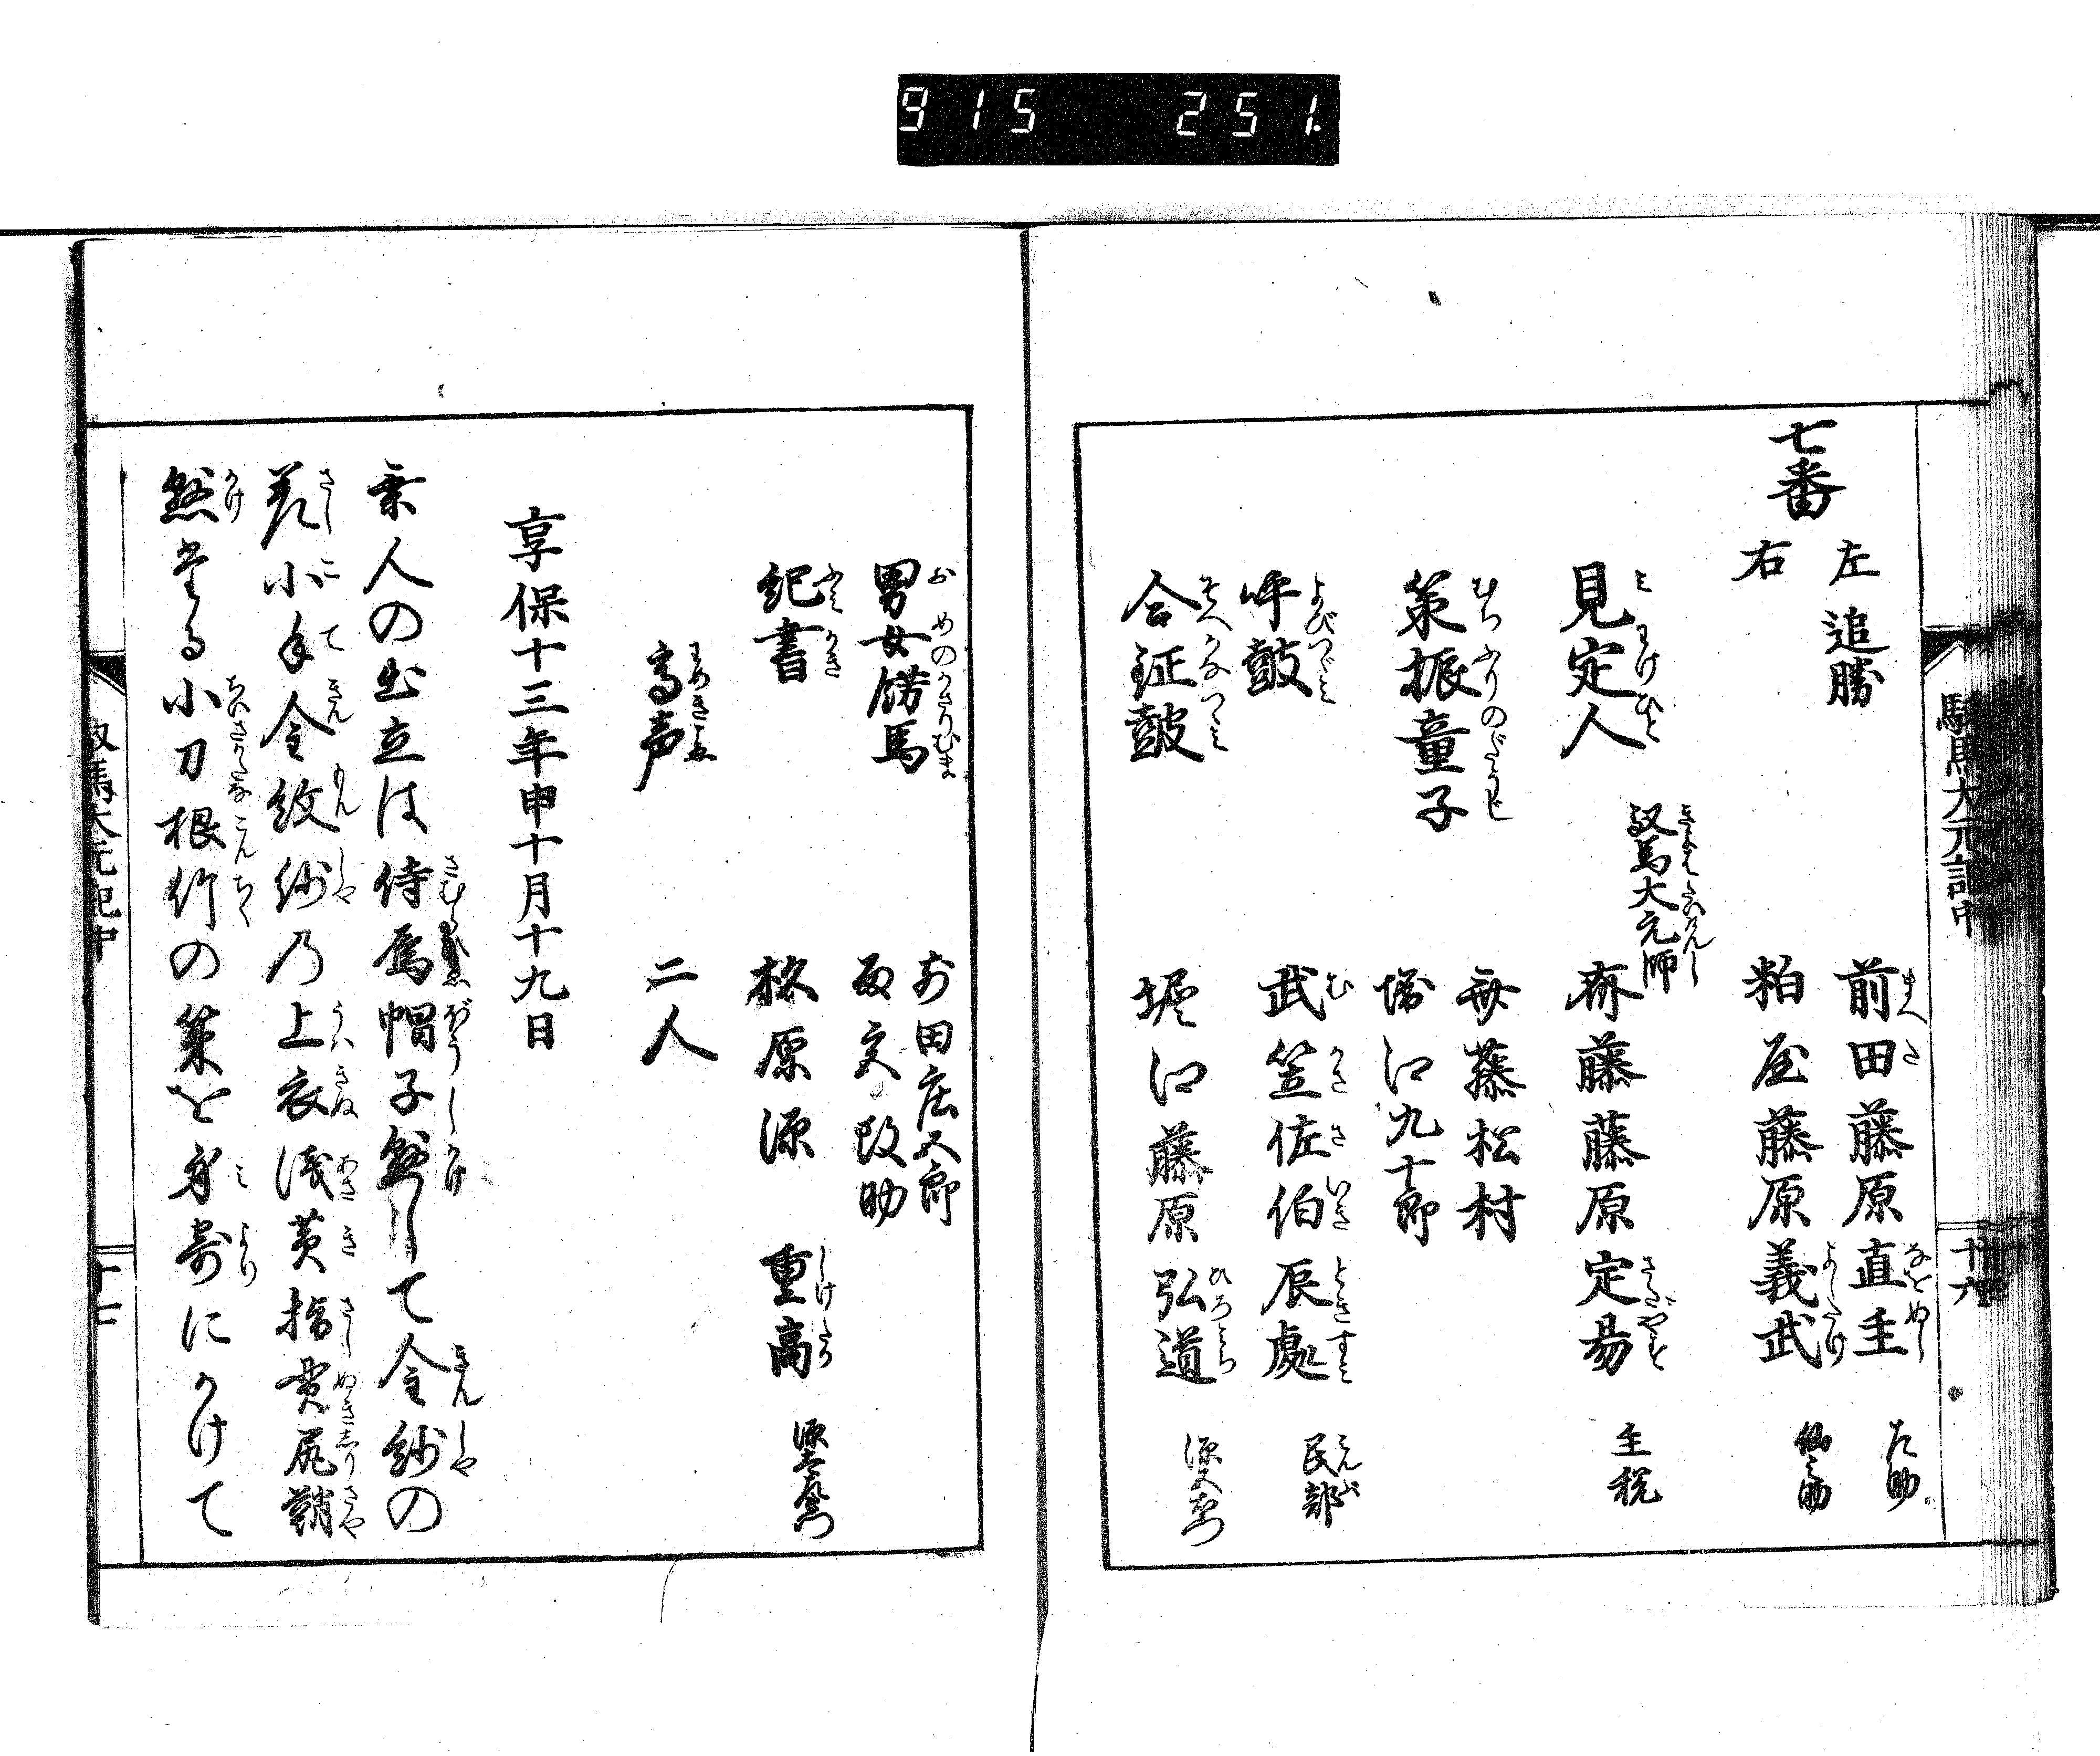 915 251.
馭馬大元記中
十六
七番
左 追勝 前田藤原直主 左助
右 粕屋藤原義武 仙之助
馭馬大元師
見定人 斎藤藤原定易 主税
策振童子 斎藤松村
堀江九十郎
呼鼓 武笠佐伯辰處 民部
合鉦鼓 堀江藤原弘道 源五右衛門
男女餝馬 前田庄五郎
紀書 松原源 重高
高声 二人
享保十三年申十月十九日
乗人の出立は侍烏帽子懸して金紗の
差小手金紋紗乃上衣浅黄指貫尻鞘
懸たる小刀根竹の策を身寄にかけて
馭馬大元記中
十七